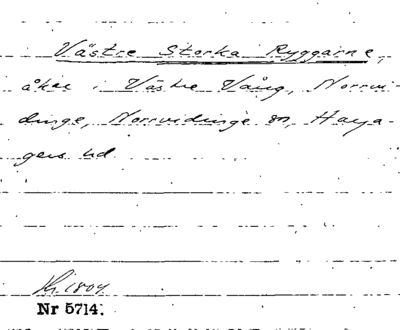 Västre Storka Ryggarne,
åker i Västre Vång, Norrvi-
dinge, Norrvidinge sn, Harja-
gers hd
Nr 5714.